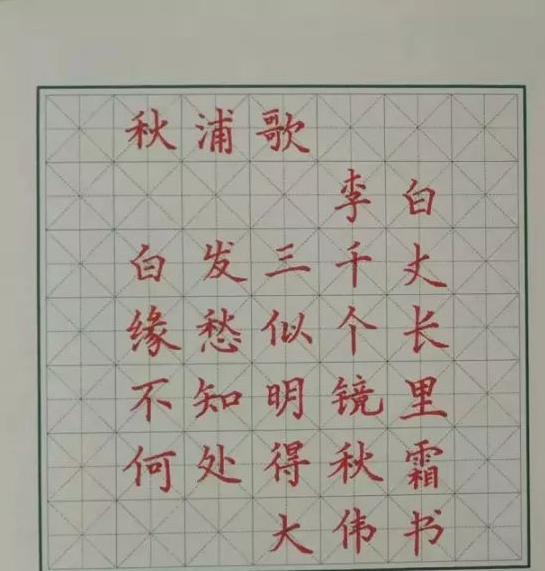 秋浦歌
李白
白发三千丈
缘愁似个长
不知明镜里
何处得秋霜
大伟书